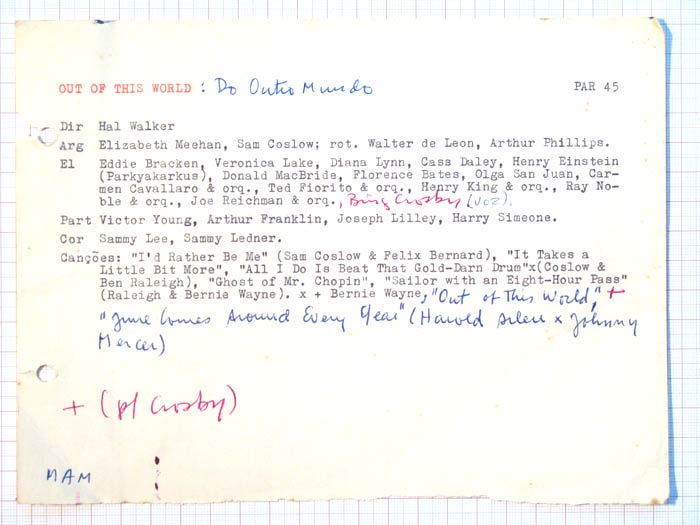 OUT OF THIS WORLD : Do Outro Mundo PAR 45
Dir Hal Walker
Arg Elizabeth Meehan, Sam Coslow; rot. Walter de Leon, Arthur Phillips.
El Eddie Bracken, Veronica Lake, Diana Lynn, Cass Daley, Henry Einstein
(Parkyakarkus), Donald MacBride, Florence Bates, Olga San Juan, Car-
men Cavallaro & orq., Ted Fiorito & orq., Henry King & orq., Ray No-
ble & orq., Joe Reichman & orq., Bing Crosby (voz).
Part Victor Young, Arthur Franklin, Joseph Lilley, Harry Simeone.
Cor Sammy Lee, Sammy Ledner.
Canções: "I'd Rather Be Me" (Sam Coslow & Felix Bernard), "It Takes a
Little Bit More", "All I Do Is Beat That Gold-Darn Drum"x(Coslow &
Ben Raleigh), "Ghost of Mr. Chopin", "Sailor with an Eight-Hour Pass"
(Raleigh & Bernie Wayne). x + Bernie Wayne, "Out of This World," +
"June Comes Around Every Year" (Harold Arlen x Johnny
Mercer)
+ (p/ Crosby)
MAM